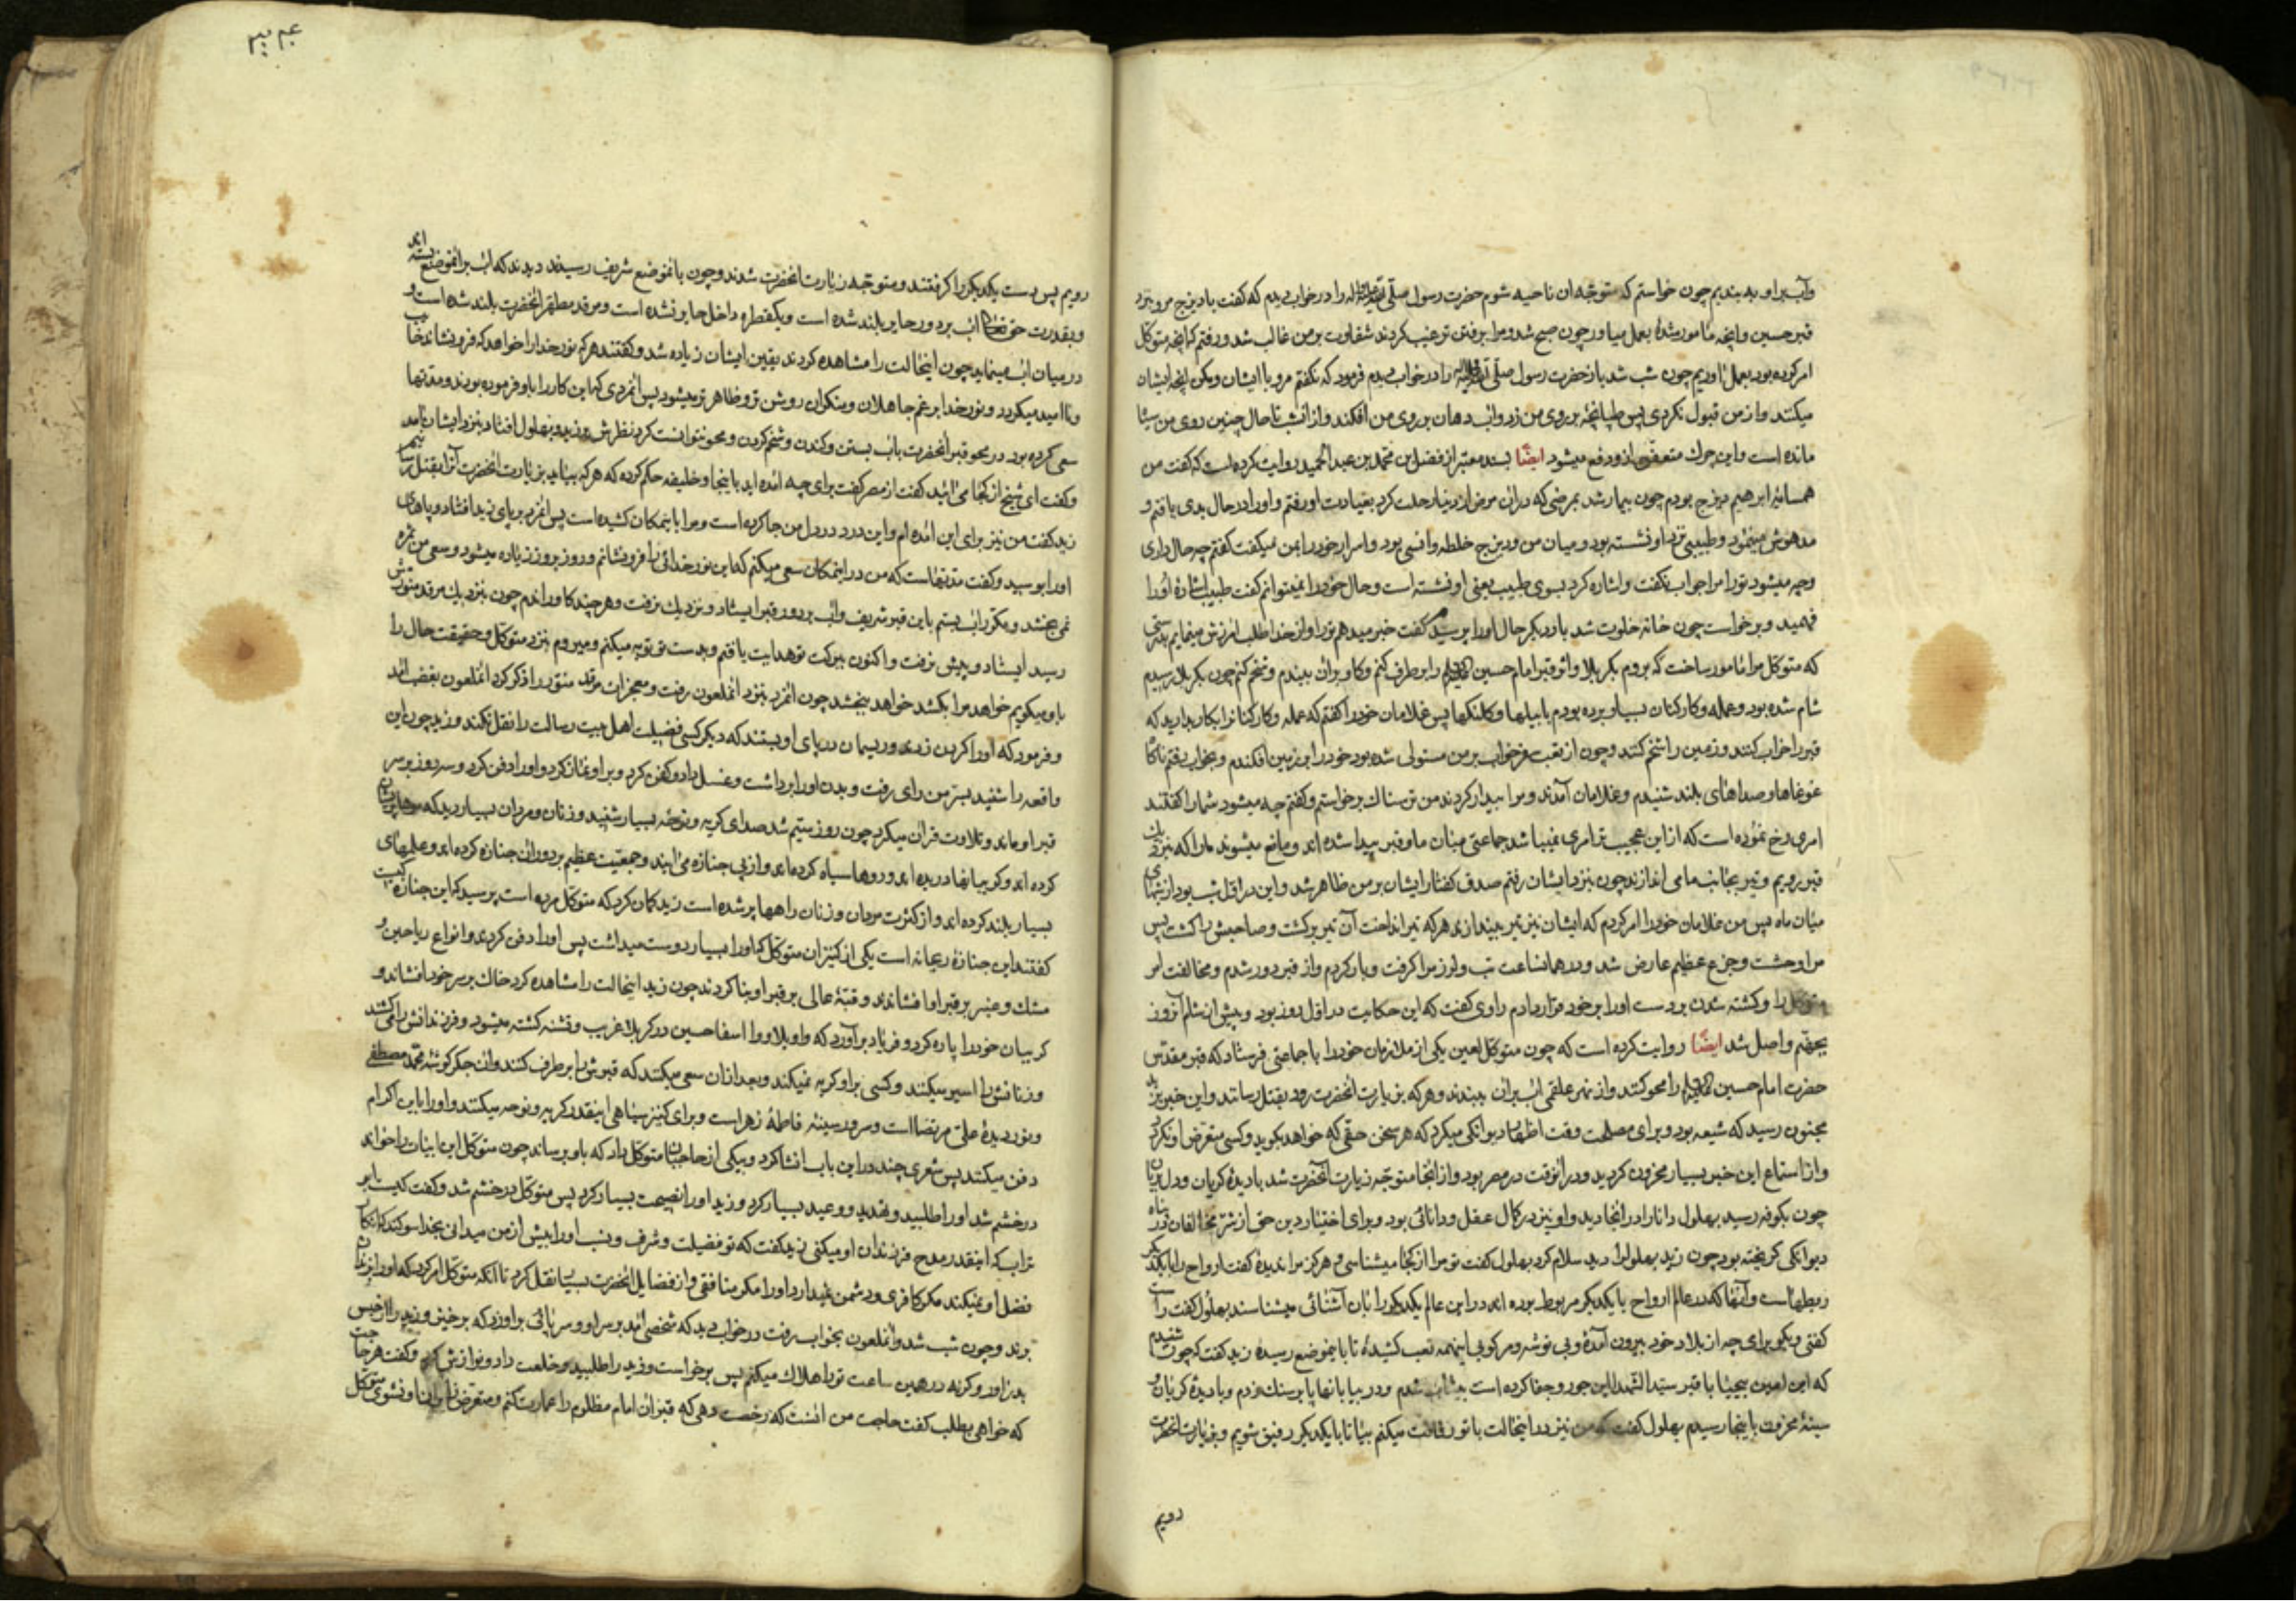 وآب بر او به بندیم چون خواستم که متوجه ان ناحیه شوم حضرت رسول صلی الله علیه واله را در خواب دیدم که گفت با دیزج مرو بنزد
قبر حسین و انچه مأمور شدهٔ بعمل میاور چون صبح شد و مرا برفتن ترغیب کردند شقاوت بر من غالب شد و رفتم و انچه متوکل
امر کرده بود بعمل اوردیم چون شب شد باز حضرت رسول صلی الله علیه واله را در خواب دیدم فرمود که نگفتم مرو با ایشان و مکن انچه ایشان
میکنند و از من قبول نکردی پس طپانچهٔ بر روی من زد و اب دهان بر روی من افکند و از انشب تا حال چنین روی من سیاه
مانده است و این چرک متعفن ازو دفع میشود ایضًا بسند معتبر از فضل بن محمد بن عبد الحمید روایت کرده است که گفت من
همسایهٔ ابرهیم دیزج بودم چون بیمار شد بمرضی که در ان مرض از دنیا رحلت کرد بعیادت او رفتم و او را در حال بدی یافتم و
مدهوش مینمود و طبیبی نزد او نشسته بود و میان من و دیزج خلطه و انسی بود و اسرار خود را بمن میگفت گفتم چه حال داری
و چه میشود تو را مرا جواب نگفت و اشاره کرد بسوی طبیب یعنی او نشسته است و حال خود را نمیتوانم گفت طبیب اشارهٔ او را
فهمید و برخواست چون خانه خلوت شد بار دیگر حال او را پرسیدم گفت خبر میدهم تو را و از خدا طلب امرزش مینمایم بدرستی
که متوکل مرا مأمور ساخت که بروم بکربلا و اثر قبر امام حسین علیه السلام را بر طرف کنم و گاو بران ببندم و شخم کنم چون بکربلا رسیدم
شام شده بود و عمله و کارکنان بسیار برده بودم با بیلها و کلنکها پس غلامان خود را گفتم که عمله و کارکنان را بکار بدارید که
قبر را خراب کنند و زمین را شخم کنند و چون از تعب سفر خواب بر من مستولی شده بود خود را بر زمین افکندم و بخواب رفتم ناگاه
غوغاها و صداهای بلند شنیدم و غلامان آمدند و مرا بیدار کردند من ترسناک برخواستم و گفتم چه میشود شما را گفتند
امری رخ نموده است که از این عجیب تر امری نمیباشد جماعتی میان ما و قبر پیدا شده اند و مانع میشوند ما را که بنزدیک
قبر رویم و تیر بجانب ما می اندازند چون بنزد ایشان رفتم صدق گفتار ایشان بر من ظاهر شد و این در اول شب بود از شبهای
میان ماه پس من غلامان خود را امر کردم که ایشان نیز تیر بیندازند هر که تیر انداخت آن تیر برگشت و صاحبش را کشت پس
مرا وحشت و جزع عظیم عارض شد و در همانساعت تب و لرز مرا گرفت و بار کردم و از قبر دور شدم و مخالفت امر
متوکل را و کشته شدن بر دست او را بر خود قرار دادم راوی گفت که این حکایت در اول روز بود و پیش از شام آنروز
بجهنم واصل شد ایضًا روایت کرده است که چون متوکل لعین یکی از ملازمان خود را با جماعتی فرستاد که قبر مقدس
حضرت امام حسین علیه السلام را محو کنند و از نهر علقمی اب بران ببندند و هر که بزیارت انحضرت رود بقتل رسانند و این خبر بزید
مجنون رسید که شیعه بود و برای مصلحت وقت اظهار دیوانگی میکرد که هر سخن حقی که خواهد بگوید و کسی متعرض او نگردد
و از استماع این خبر بسیار محزون گردید و در انوقت در مصر بود و از انجا متوجه زیارت آنحضرت شد با دیدهٔ گریان و دل بریان
چون بکوفه رسید بهلول دانا را در انجا دید و او نیز در کمال عقل و دانائی بود و برای اختیار دین حق از شر مخالفان در پناه
دیوانگی گریخته بود چون زید بهلول را دید سلام کرد بهلول گفت تو مرا از کجا میشناسی و هرگز مرا ندیدهٔ گفت ارواح را با یکدیگر
ربطهاست و آنها که در عالم ارواح با یکدیگر مربوط بوده اند در این عالم یکدیگر را بان آشنائی میشناسند بهلول گفت راست
گفتی دیگو برای چه از بلاد خود بیرون آمدهٔ و بی توشه و مرکوبی اینهمه تعب کشیدهٔ تا باینموضع رسیدهٔ زید گفت که چون شنیدم
که این لعین بیحیا با قبر سید الشهدا این جور و جفا کرده است بیتاب شدم و در بیابانها پا بر سنک زدم و با دیدهٔ گریان و
سینهٔ محزون باینجا رسیدم بهلول گفت که من نیز در اینحالت با تو رفاقت میکنم بیا تا با یکدیگر رفیق شویم و بزیارت انحضرت
رویم
رویم پس دست یکدیگر را گرفتند و متوجه زیارت انحضرت شدند و چون بانموضع شریف رسیدند دیدند که اب بر انموضع بسته اند
و بقدرت حق تعالی اب بر دور حایر بلند شده است و یکقطره داخل حایر نشده است و مرقد مطهر انحضرت بلند شده است و
در میان اب مینماید چون اینحالت را مشاهده کردند یقین ایشان زیاده شد و گفتند هر که نور خدا را خواهد که فرو نشاند خایب
و ناامید میگردد و نور خدا برغم جاهلان و منکران روشن تر و ظاهر تر میشود پس انمردی که این کار را باو فرموده بودند و مدتها
سعی کرده بود در محو قبر انحضرت باب بستن و کندن و شخم کردن و محو نتوانست کرد نظرش بر زید و بهلول افتاد بنزد ایشان آمد
و گفت ای شیخ از کجا می ائید گفت از مصر گفت برای چه امده اید باینجا و خلیفه حکم کرده که هر که بیاید بزیارت انحضرت آنرا بقتل رسانیم
زید گفت من نیز برای این امده ام و این درد در دل من جا کرده است و مرا باینمکان کشیده است پس انمرد بر پای زید افتاد و پاهای
او را بوسید و گفت مدتهاست که من در اینمکان سعی میکنم که این نور خدائی را فرو نشانم و روز بروز زیاده میشود و سعی من ثمره
نمی بخشد و مکرر اب بستم باین قبر شریف و اب بر دور قبر ایستاد و نزدیک نرفت و هر چند گاو راندم چون بنزدیک مرقد منورش
رسید ایستاد و پیش نرفت و اکنون ببرکت تو هدایت یافتم و بدست تو توبه میکنم و میروم بنزد متوکل و حقیقت حال را
باو میگویم خواهد مرا بکشد خواهد ببخشد چون انمرد بنزد انملعون رفت و معجزات مرقد منور را ذکر کرد انملعون بغضب امد
و فرمود که او را گردن زدند و ریسمان در پای او بستند که دیگر کسی فضیلت اهل بیت رسالت را نقل نکند و زید چون این
واقعه را شنید بسر من رای رفت و بدن او را برداشت و غسل داد و کفن کرد و بر او نماز کرد و او را دفن کرد و سه روز بر سر
قبر او ماند و تلاوت قران میکرد چون روز سیم شد صدای گریه و نوحه بسیار شنید و زنان و مردان بسیار دید که موها پریشان
کرده اند و گریبانها دریده اند و روها سیاه کرده اند و از پی جنازه می ایند و جمعیت عظیم بر دور ان جنازه کرده اند و علمهای
بسیار بلند کرده اند و از کثرت مردان و زنان راهها پر شده است زید گمان کرد که متوکل مرده است پرسید که این جنازه کیست
گفتند این جنازهٔ ریحانه است یکی از کنیزان متوکل که او را بسیار دوست میداشت پس او را دفن کردند و انواع ریاحین و
مشک و عنبر بر قبر او افشاندند و قبهٔ عالی بر قبر او بنا کردند چون زید اینحالت را مشاهده کرد خاک بر سر خود افشاند و
گریبان خود را پاره کرد و فریاد بر آورد که واویلا و وا اسفا حسین در کربلا غریب و تشنه کشته میشود و فرزندانش را می کشند
و زنانش را اسیر میکنند و کسی بر او گریه نمیکند و بعد ازان سعی میکنند که قبرش را بر طرف کنند و ان جگر گوشهٔ محمد مصطفی
و نور دیدهٔ علی مرتضا است و سرور سینهٔ فاطمهٔ زهرا است و برای کنیز سیاهی اینقدر گریه و نوحه میکنند و او را باین اکرام
دفن میکنند پس شعری چند در این باب انشا کرد و بیکی از حاجبان متوکل داد که باو برساند چون متوکل این ابیات را خواند
در خشم شد او را طلبید و تهدید و وعید بسیار کرد و زید او را نصیحت بسیار کرد پس متوکل در خشم شد و گفت کیست ابو
تراب که اینقدر مدح فرزندان او میکنی زید گفت که تو فضیلت و شرف و نسب او را بیش از من میدانی بخدا سوگند که انکار
فضل او نمیکند مگر کافری و دشمن نمیدارد او را مگر منافقی و از فضایل انحضرت بسیار نقل کرد تا آنکه متوکل امر کرد که او را بزندان
بردند و چون شب شد و انملعون بخواب رفت در خواب دید که شخصی امد بر سر او و سر پائی بر او زد که برخیز و زید را از حبس
بدر اور و گرنه در همین ساعت تو را هلاک میکنم پس برخواست و زید را طلبید و خلعت داد و نوازش کرد و گفت هر حاجت
که خواهی بطلب گفت حاجت من انست که رخصت دهی که قبر ان امام مظلوم را عمارت کنم و متعرض زایران او نشوی متوکل